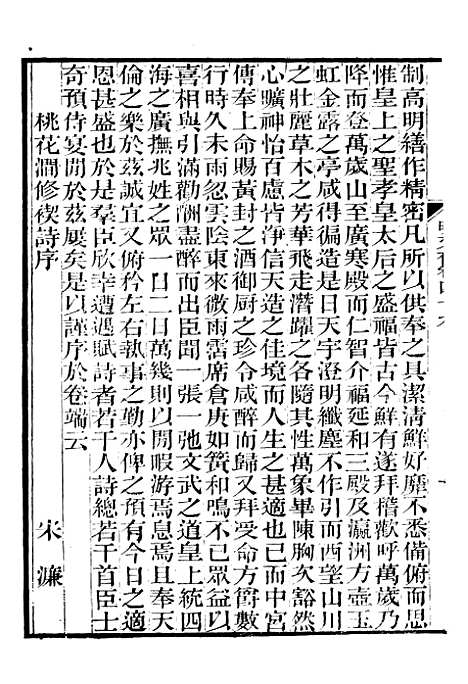 制高明繕作精密凡所以供奉之具潔清鮮好靡不悉備俯而思
惟皇上之聖孝皇太后之盛福皆古今鮮有遂拜稽歡呼萬歲乃
降而登萬歲山至廣寒殿而仁智介福延和三殿及瀛洲方壺玉
虹金露之亭咸得徧造是日天宇澄明纖塵不作引而西望山川
之壯麗草木之芳華飛走潛躍之各隨其性萬象畢陳胸次豁然
心曠神怡百慮皆淨信天造之佳境而人生之甚適也已而中宮
傳奉上命賜黃封之酒御厨之珍令咸醉而歸又拜受命方觴數
行時久未雨忽雲陰東來微雨霑席倉庚如簧和鳴不已眾益以
喜相與引滿勸酬盡醉而出臣聞一張一弛文武之道皇上統四
海之廣撫兆姓之眾一日二日萬幾則以閒暇游焉息焉且奉天
倫之樂於茲誠宜又俯矜左右執事之勤亦俾之預有今日之適
恩甚盛也於是羣臣欣幸遭遇賦詩者若干人詩總若干首臣士
奇預侍宴閒於茲屢矣是以謹序於卷端云
桃花澗修禊詩序 宋濂